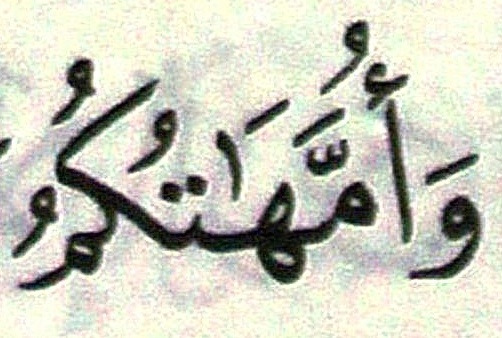 وَأُمَّهَٰتُكُمُ